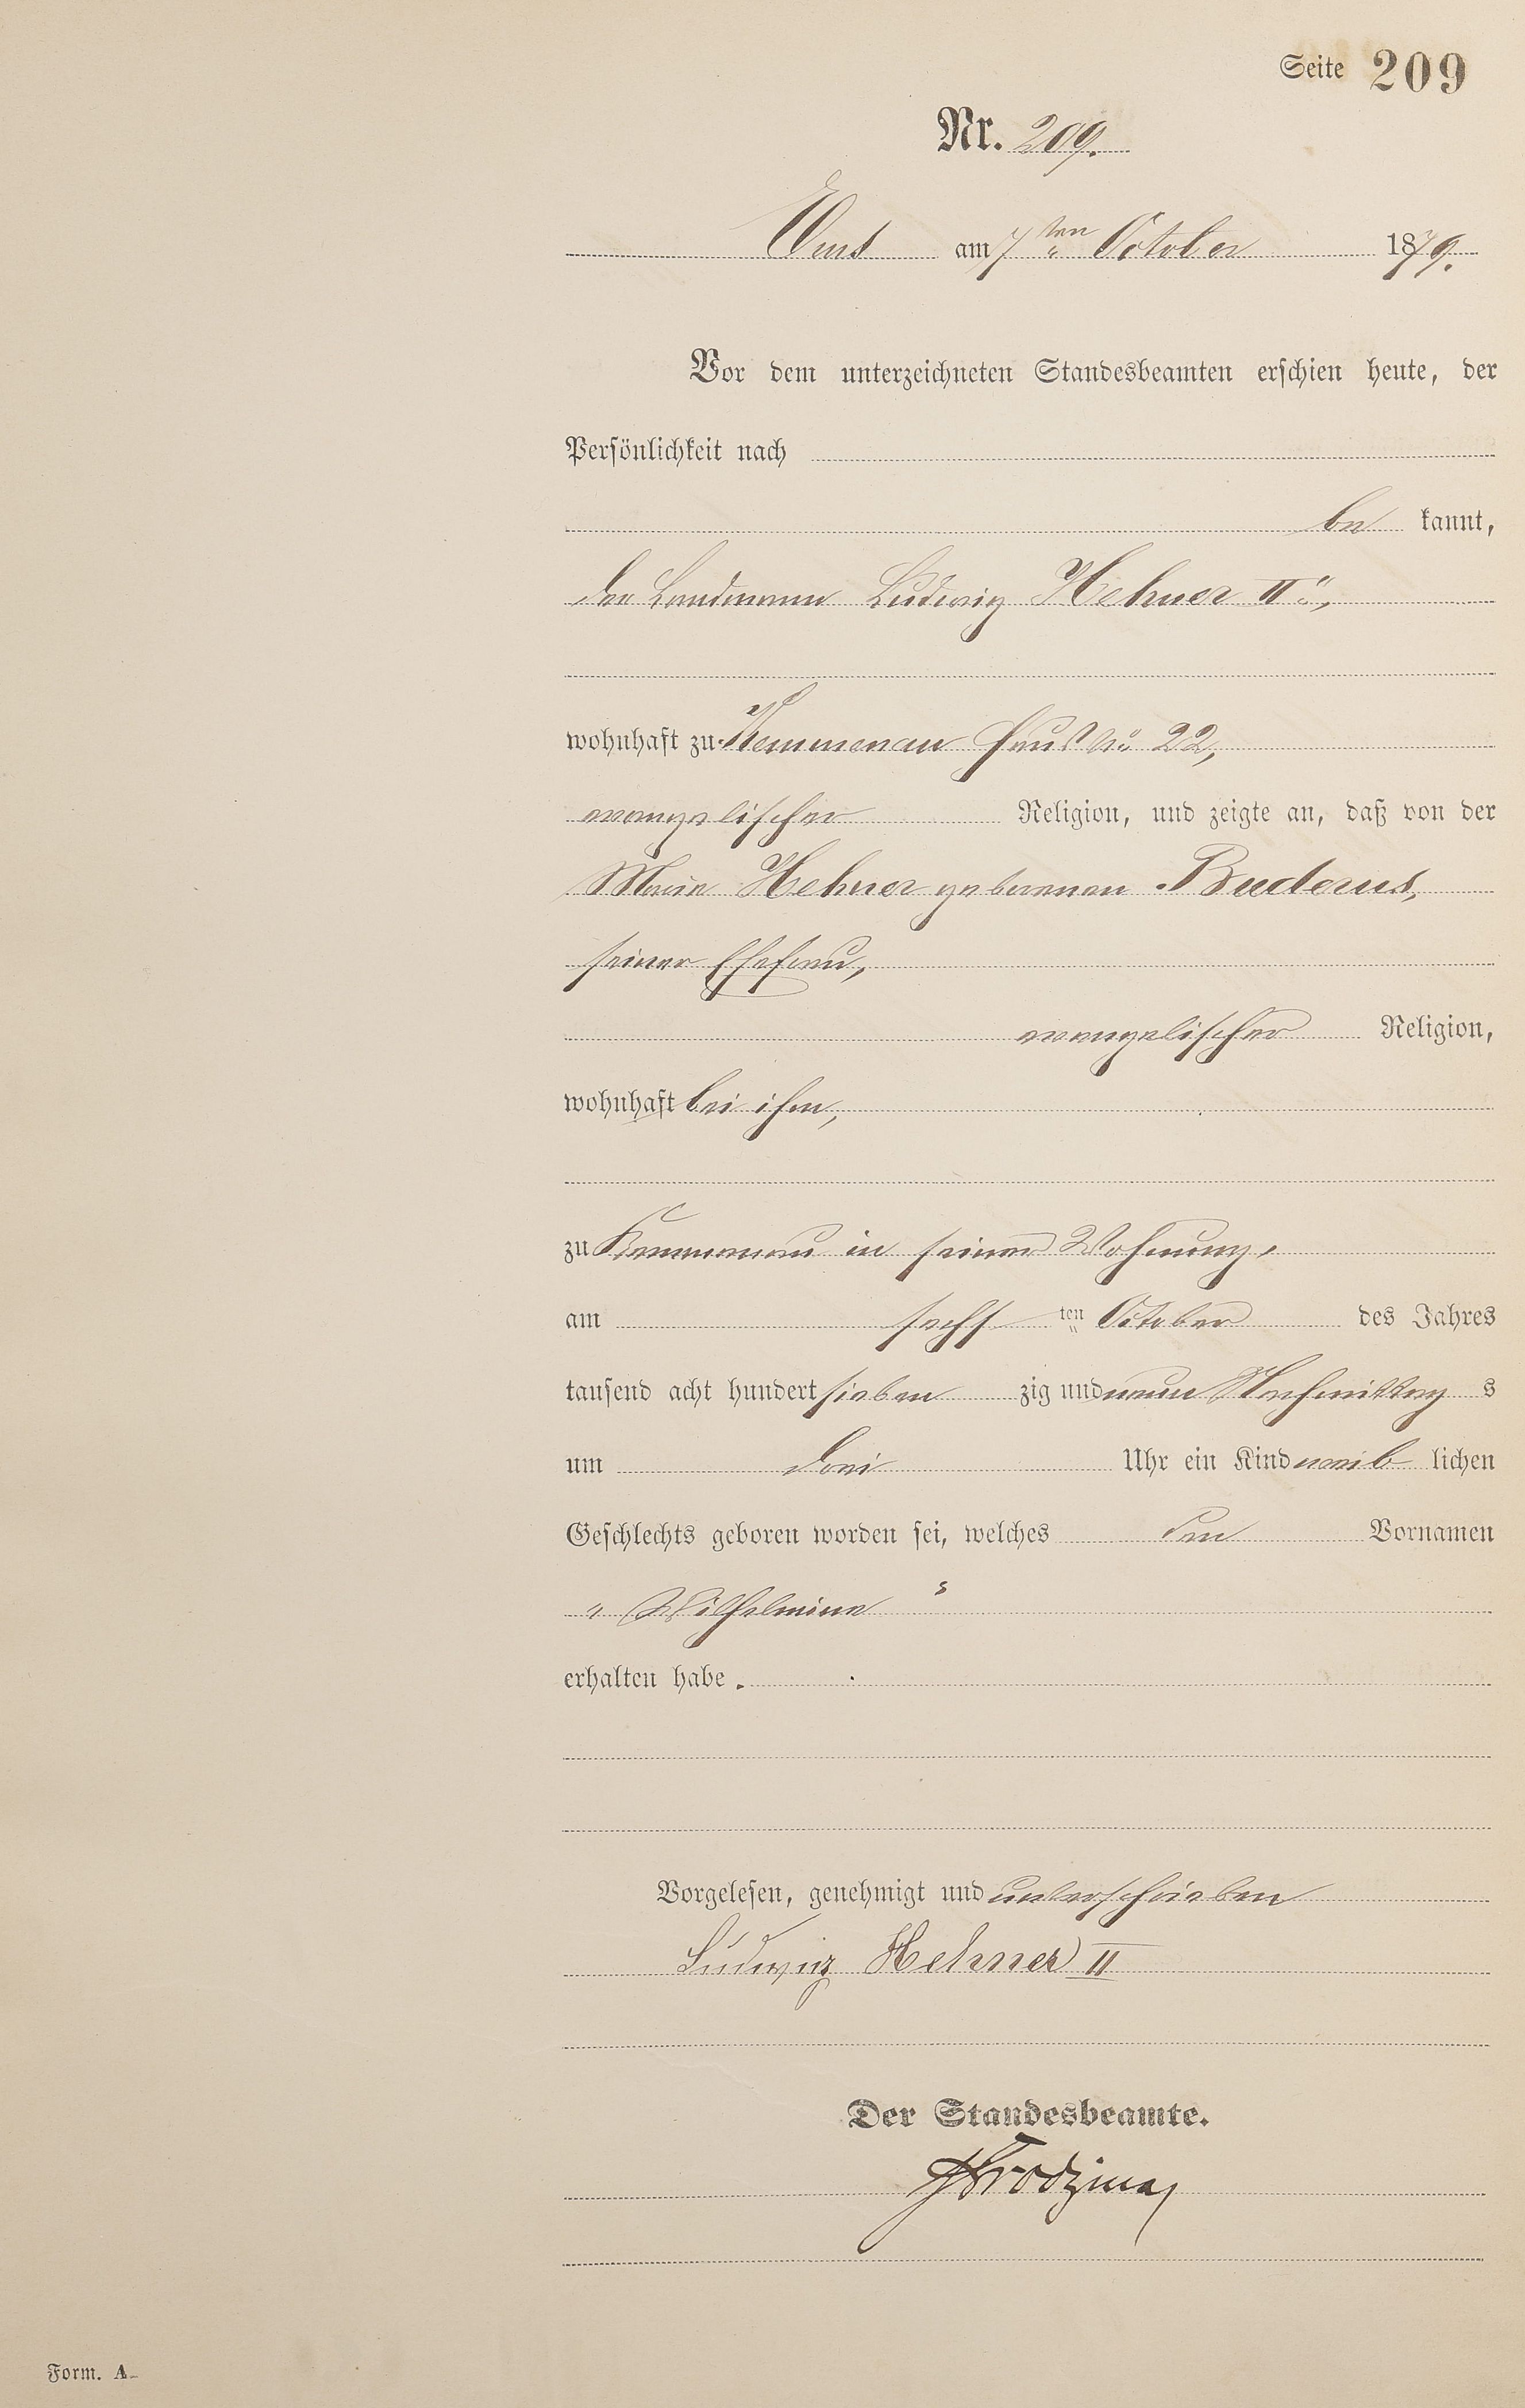 Seite 209
Nr. 209.
Ems am 7ten October 1879.
Vor dem unterzeichneten Standesbeamten erschien heute, der
Persönlichkeit nach
be kannt,
der Landmann Ludwig Hehner IIr,
wohnhaft zu Kemmenau Haus No 22,
evangelischer Religion, und zeigte an, daß von der
Marie Hehner geborenen Buderus,
seiner Ehefrau,
evangelischer Religion,
wohnhaft bei ihm,
zu Kemmenau in seiner Wohnung,
am sechs ten October des Jahres
tausend acht hundert sieben zig und neun Nachmittag s
um drei Uhr ein Kind weib lichen
Geschlechts geboren worden sei, welches den Vornamen
"Wilhelmine"
erhalten habe.
Vorgelesen, genehmigt und unterschrieben
Ludwig Hehner II
Der Standesbeamte.
Form. A.